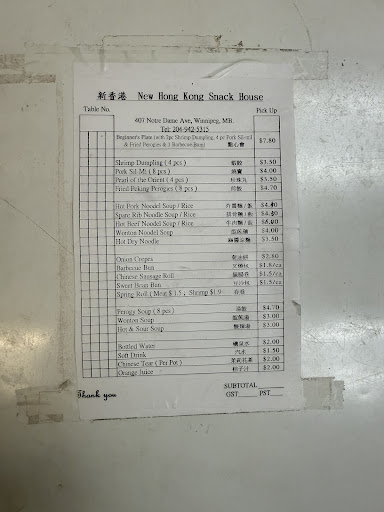 新香港 New Hong Kong Snack House
Table No. Pick Up
407 Notre Dame Ave, Winnipeg, MB.
Tel: 204-942-5315
Beginner's Plate (with 2pc Shrimp Dumpling, 4 pc Pork Sil-mi $7.80
& Fried Perogies & 1 Barbecue Bun) 點心會
Shrimp Dumpling (4 pcs) 蝦餃 $3.50
Pork Sil-Mi (8 pcs) 燒賣 $4.00
Pearl of the Orient (4 pcs) 珍珠丸 $3.50
Fried Peking Perogies (8 pcs) 煎餃 $4.70
Hot Pork Noodel Soup / Rice
Spare Rib Noodle Soup / Rice
Hot Beef Noodel Soup / Rice
Wonton Noodel Soup $4.00
Hot Dry Noodle $3.50
Onion Crepes $2.80
Barbecue Bun
Chinese Sausage Roll $1.5/ea
Sweet Bean Bun $1.5/ea
Spring Roll (Meat $1.5; Shrimp $1.9 春卷
Perogy Soup (8 pcs) $4.70
Wonton Soup $3.00
Hot & Sour Soup 酸辣湯 $3.00
Bottled Water 礦泉水 $2.00
Soft Drink 汽水 $1.50
Chinese Tear (Per Pot) $2.00
Orange Juice 桔子汁 $2.00
SUBTOTAL
GST PST
Thank you